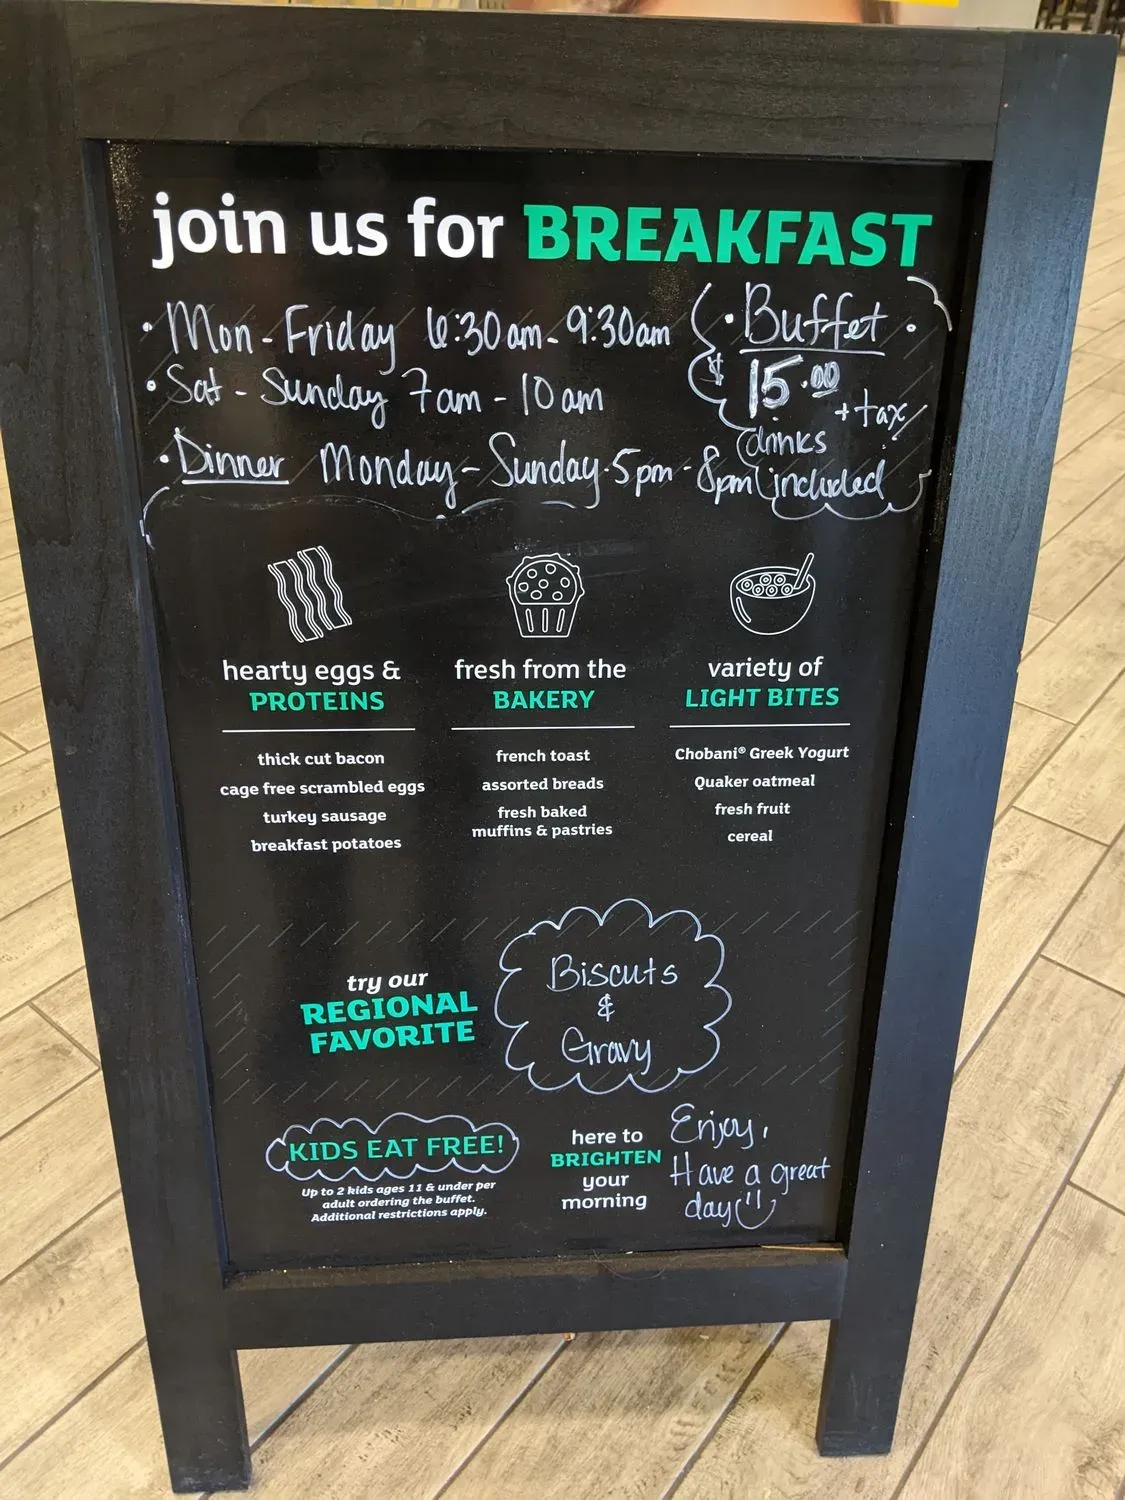 join us for BREAKFAST
• Mon - Friday 6:30am - 9:30am
• Sat - Sunday 7am - 10am
• Dinner Monday - Sunday • 5pm - 8pm
• Buffet •
$ 15.00
+ tax
drinks
included
hearty eggs &
PROTEINS
thick cut bacon
cage free scrambled eggs
turkey sausage
breakfast potatoes
fresh from the
BAKERY
french toast
assorted breads
fresh baked
muffins & pastries
variety of
LIGHT BITES
Chobani® Greek Yogurt
Quaker oatmeal
fresh fruit
cereal
try our
REGIONAL
FAVORITE
Biscuts
&
Gravy
KIDS EAT FREE!
Up to 2 kids ages 11 & under per
adult ordering the buffet.
Additional restrictions apply.
here to
BRIGHTEN
your
morning
Enjoy,
Have a great
day!!